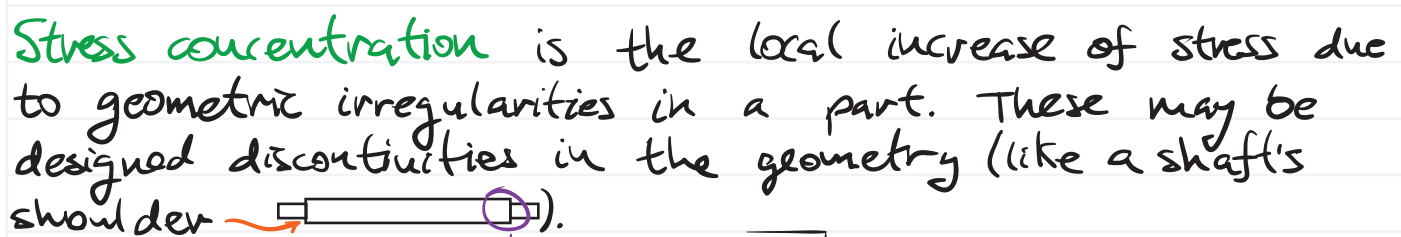 Stress concentration is the local increase of stress due
to geometric irregularities in a part. These may be
designed discontinuities in the geometry (like a shaft's
shoulder ).